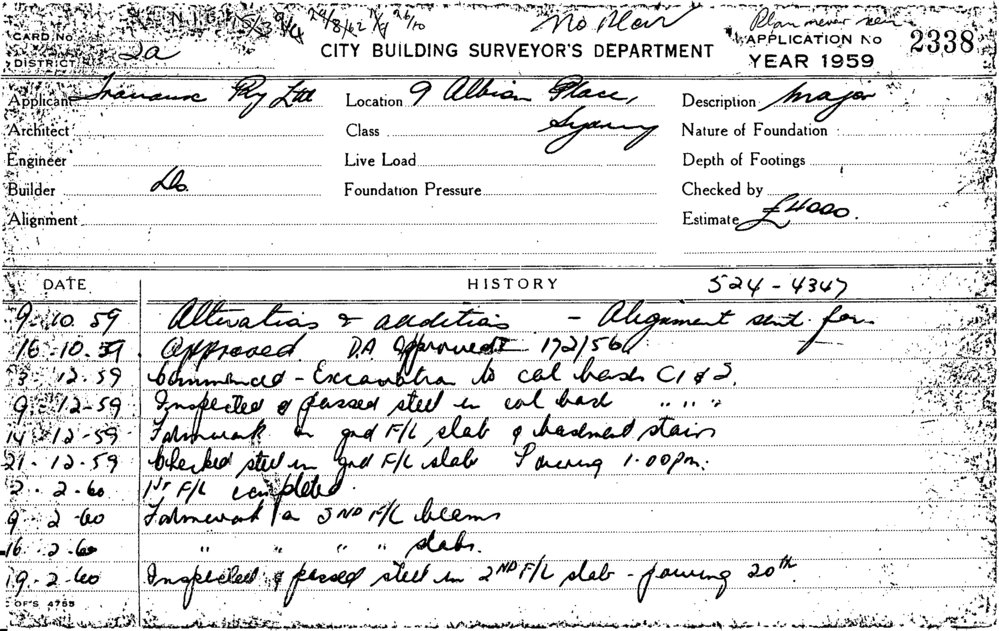 No Plan
Plan never seen
CARD No
DISTRICT 2a
CITY BUILDING SURVEYOR'S DEPARTMENT
APPLICATION No 2338
YEAR 1959
Applicant Pty Ltd Location 9 Albion Place, Description Major
Architect Class Sydney Nature of Foundation
Engineer Live Load Depth of Footings
Builder Do. Foundation Pressure Checked by
Alignment Estimate £4000.
DATE HISTORY 524-4347
9-10 59 Alterations & additions - Alignment sent for
16-10-59 Approved. DA Approved 172/56
3-12-59 Commenced - Excavation to col bases C1 & 2.
9-12-59 Inspected & passed steel in col base " " "
14-12-59 Formwork on gnd F/L slab & basement stairs
21-12-59 Checked steel in gnd F/L slab Pouring 1.00pm.
2-2-60 1st F/L completed.
9-2-60 Formwork to 2ND F/L beams
16-2-60 " " " " slabs.
19-2-60 Inspected & passed steel in 2ND F/L slab - pouring 20th
OF'S 4755